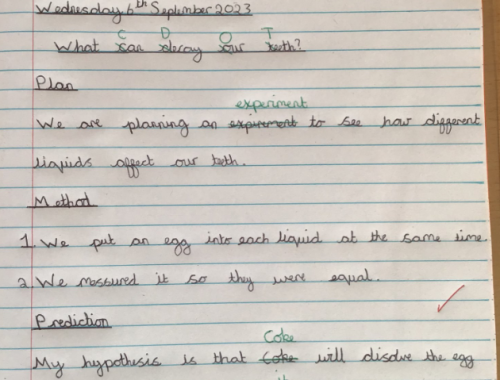 Wednesday 6th September 2023
C D O T
What can decay our teeth?
Plan
experiment
We are planning an expirement to see how different
liquids affect our teeth.
Method
1. We put an egg into each liquid at the same time.
2. We measured it so they were equal.
Prediction
Coke
My hypothesis is that Coke will disolve the egg